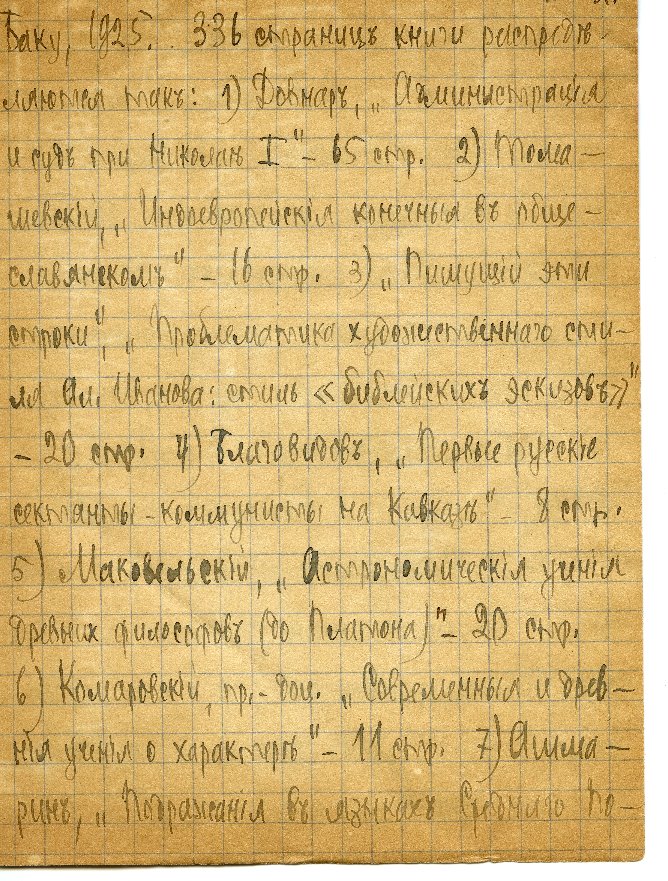 Баку, 1925. . 336 страницъ книги распредѣ-
ляются такъ: 1) Довнаръ, „Администрація
и судъ при Николаѣ I" – 65 стр. 2) Тома-
шевскій, „Индоевропейскія конечныя въ обще-
славянскомъ" – 16 стр. 3) „Пишущій эти
строки", „Проблематика художественнаго сти-
ля Ал. Иванова: стиль «библейскихъ эскизовъ»"
– 20 стр. 4) Благовидовъ, „Первые русскіе
сектанты-коммунисты на Кавказѣ" – 8 стр.
5) Маковельскій, „Астрономическія ученія
древних философовъ (до Платона)" – 20 стр.
6) Комаровскій, пр.-доц. „Современныя и древ-
нія ученія о характерѣ" – 11 стр. 7) Ашма-
ринъ, „Подражанія въ языкахъ Средняго По-